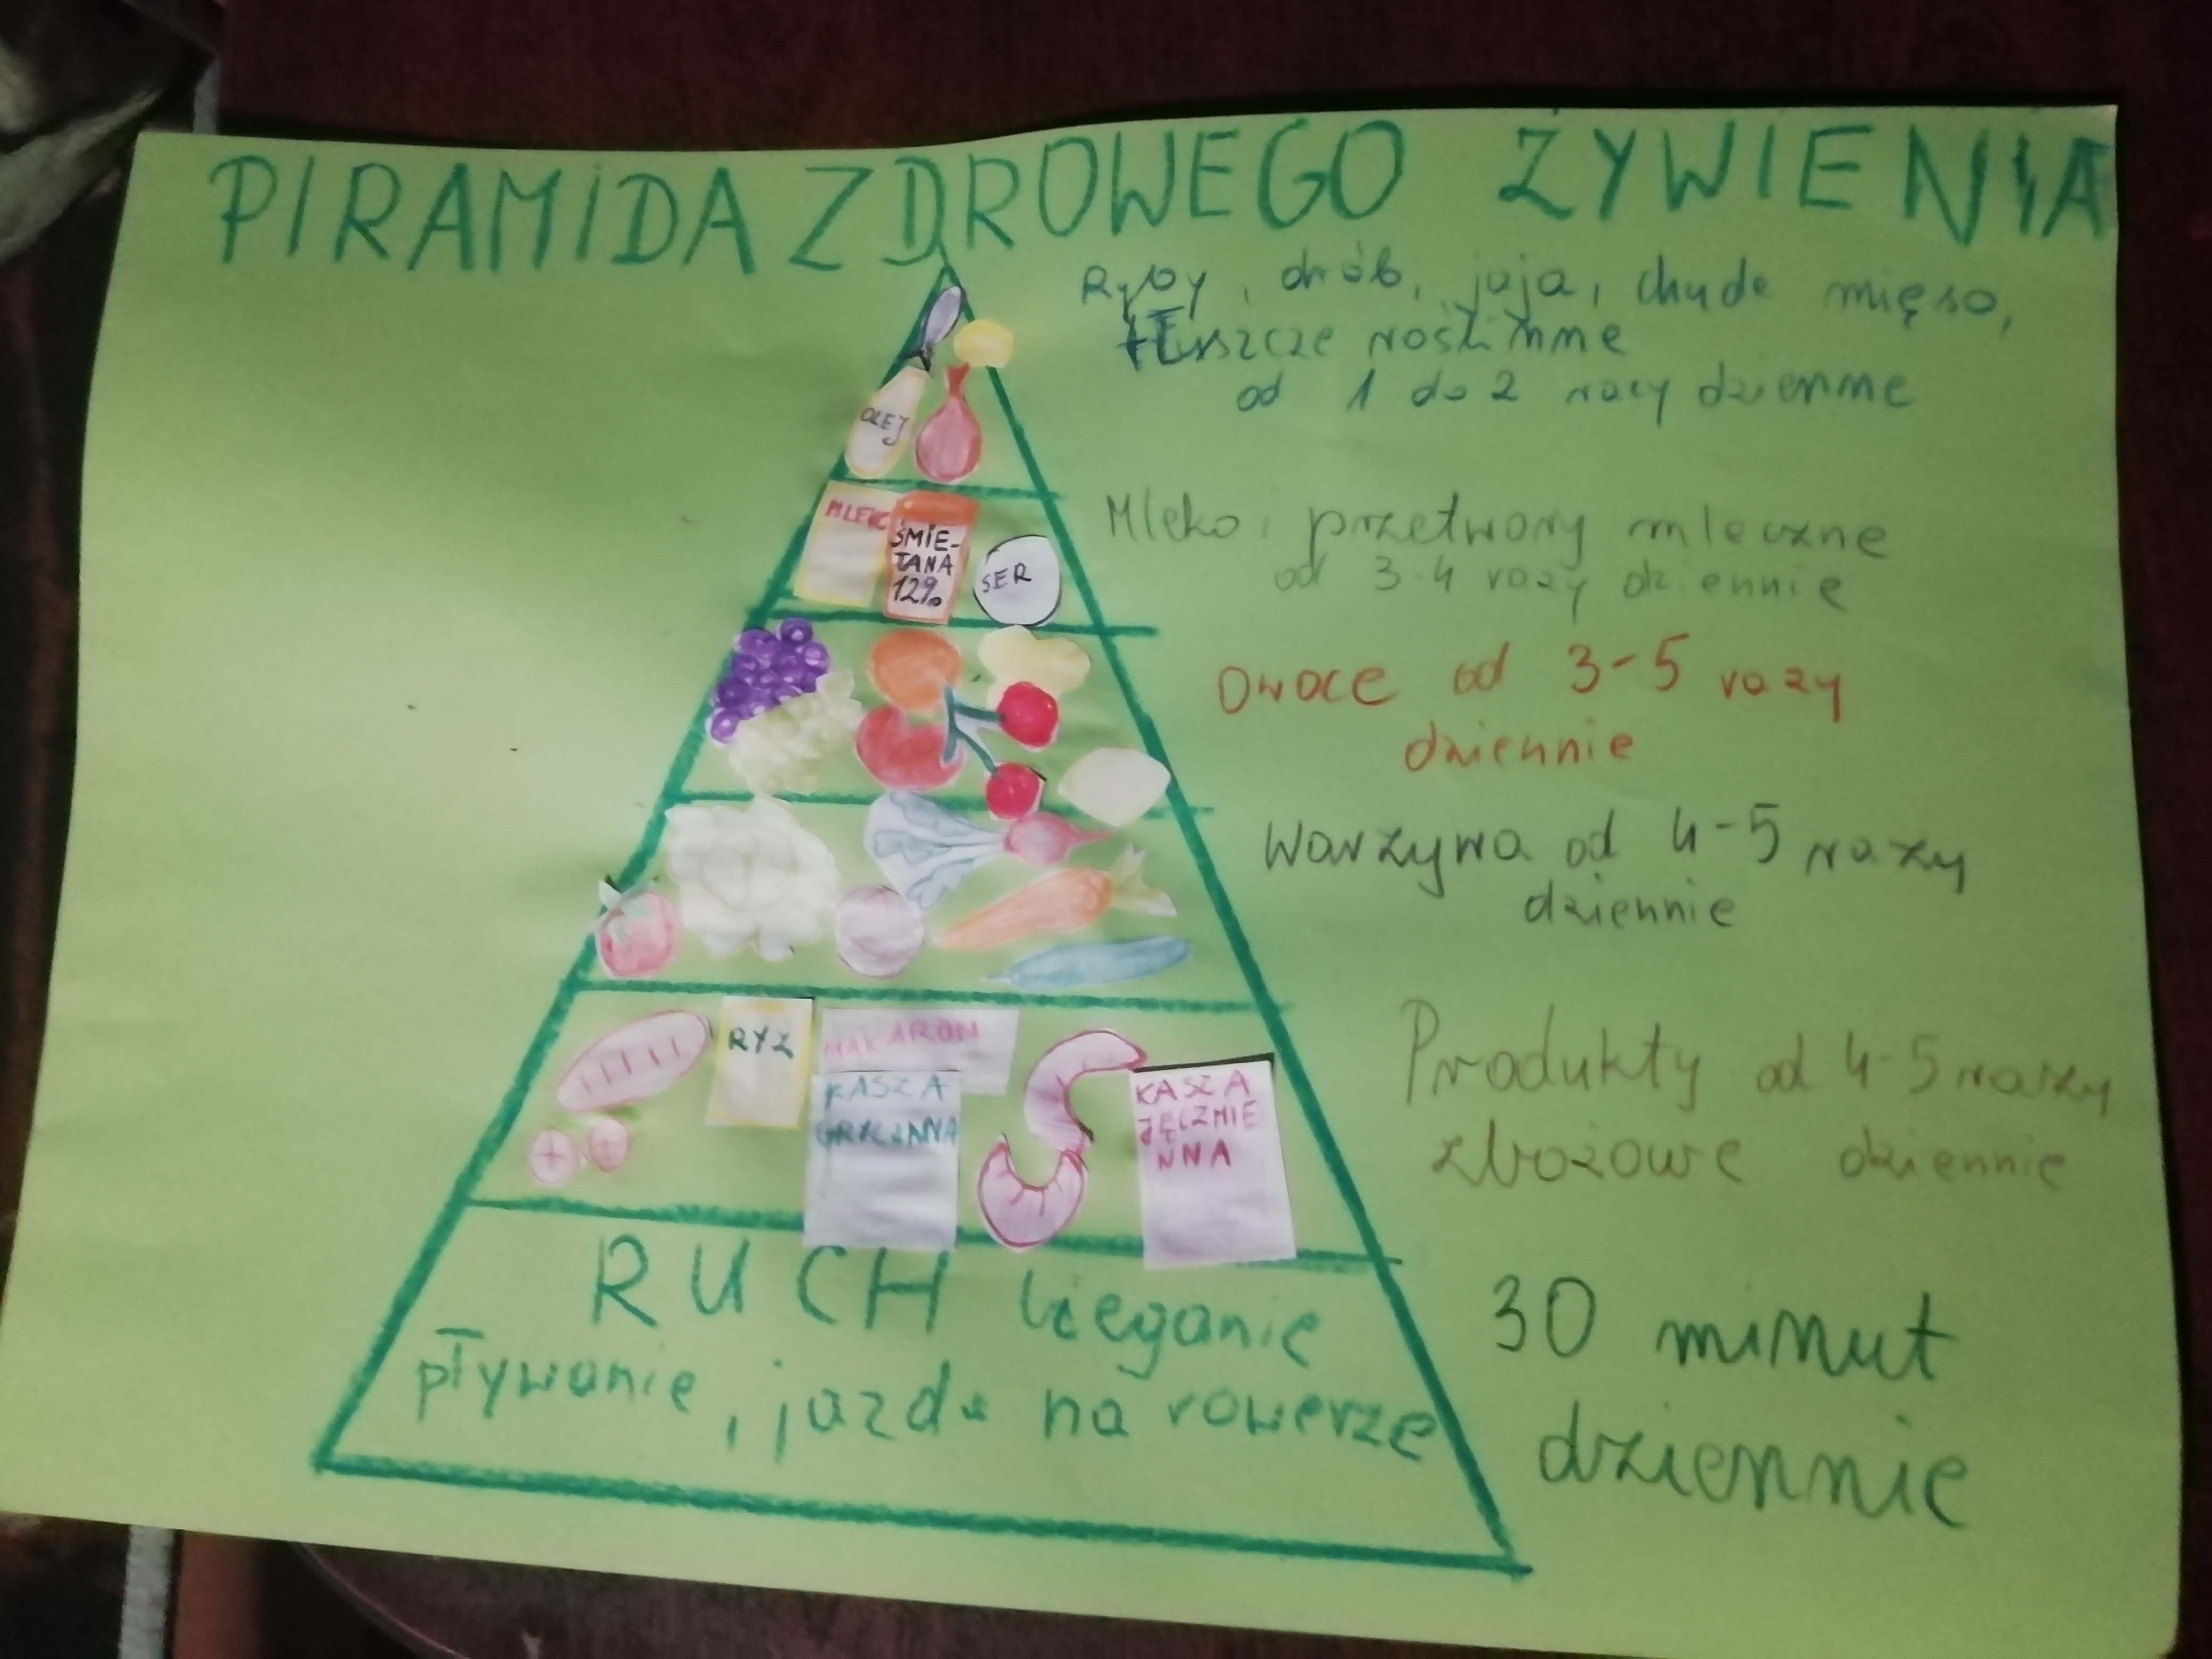 PIRAMIDA ZDROWEGO ŻYWIENIA
Ryby, drób, jaja, chude mięso,
tłuszcze roślinne
od 1 do 2 razy dzienne
OLEJ
MLEKO
ŚMIE-
TANA
12%
SER
Mleko i przetwory mleczne
od 3-4 razy dziennie
Owoce od 3-5 razy
dziennie
Warzywa od 4-5 razy
dziennie
RYŻ
MAKARON
KASZA
GRYCZANNA
KASZA
JĘCZMIE
NNA
Produkty od 4-5 razy
zbożowe dziennie
RUCH bieganie
pływanie, jazda na rowerze
30 minut
dziennie